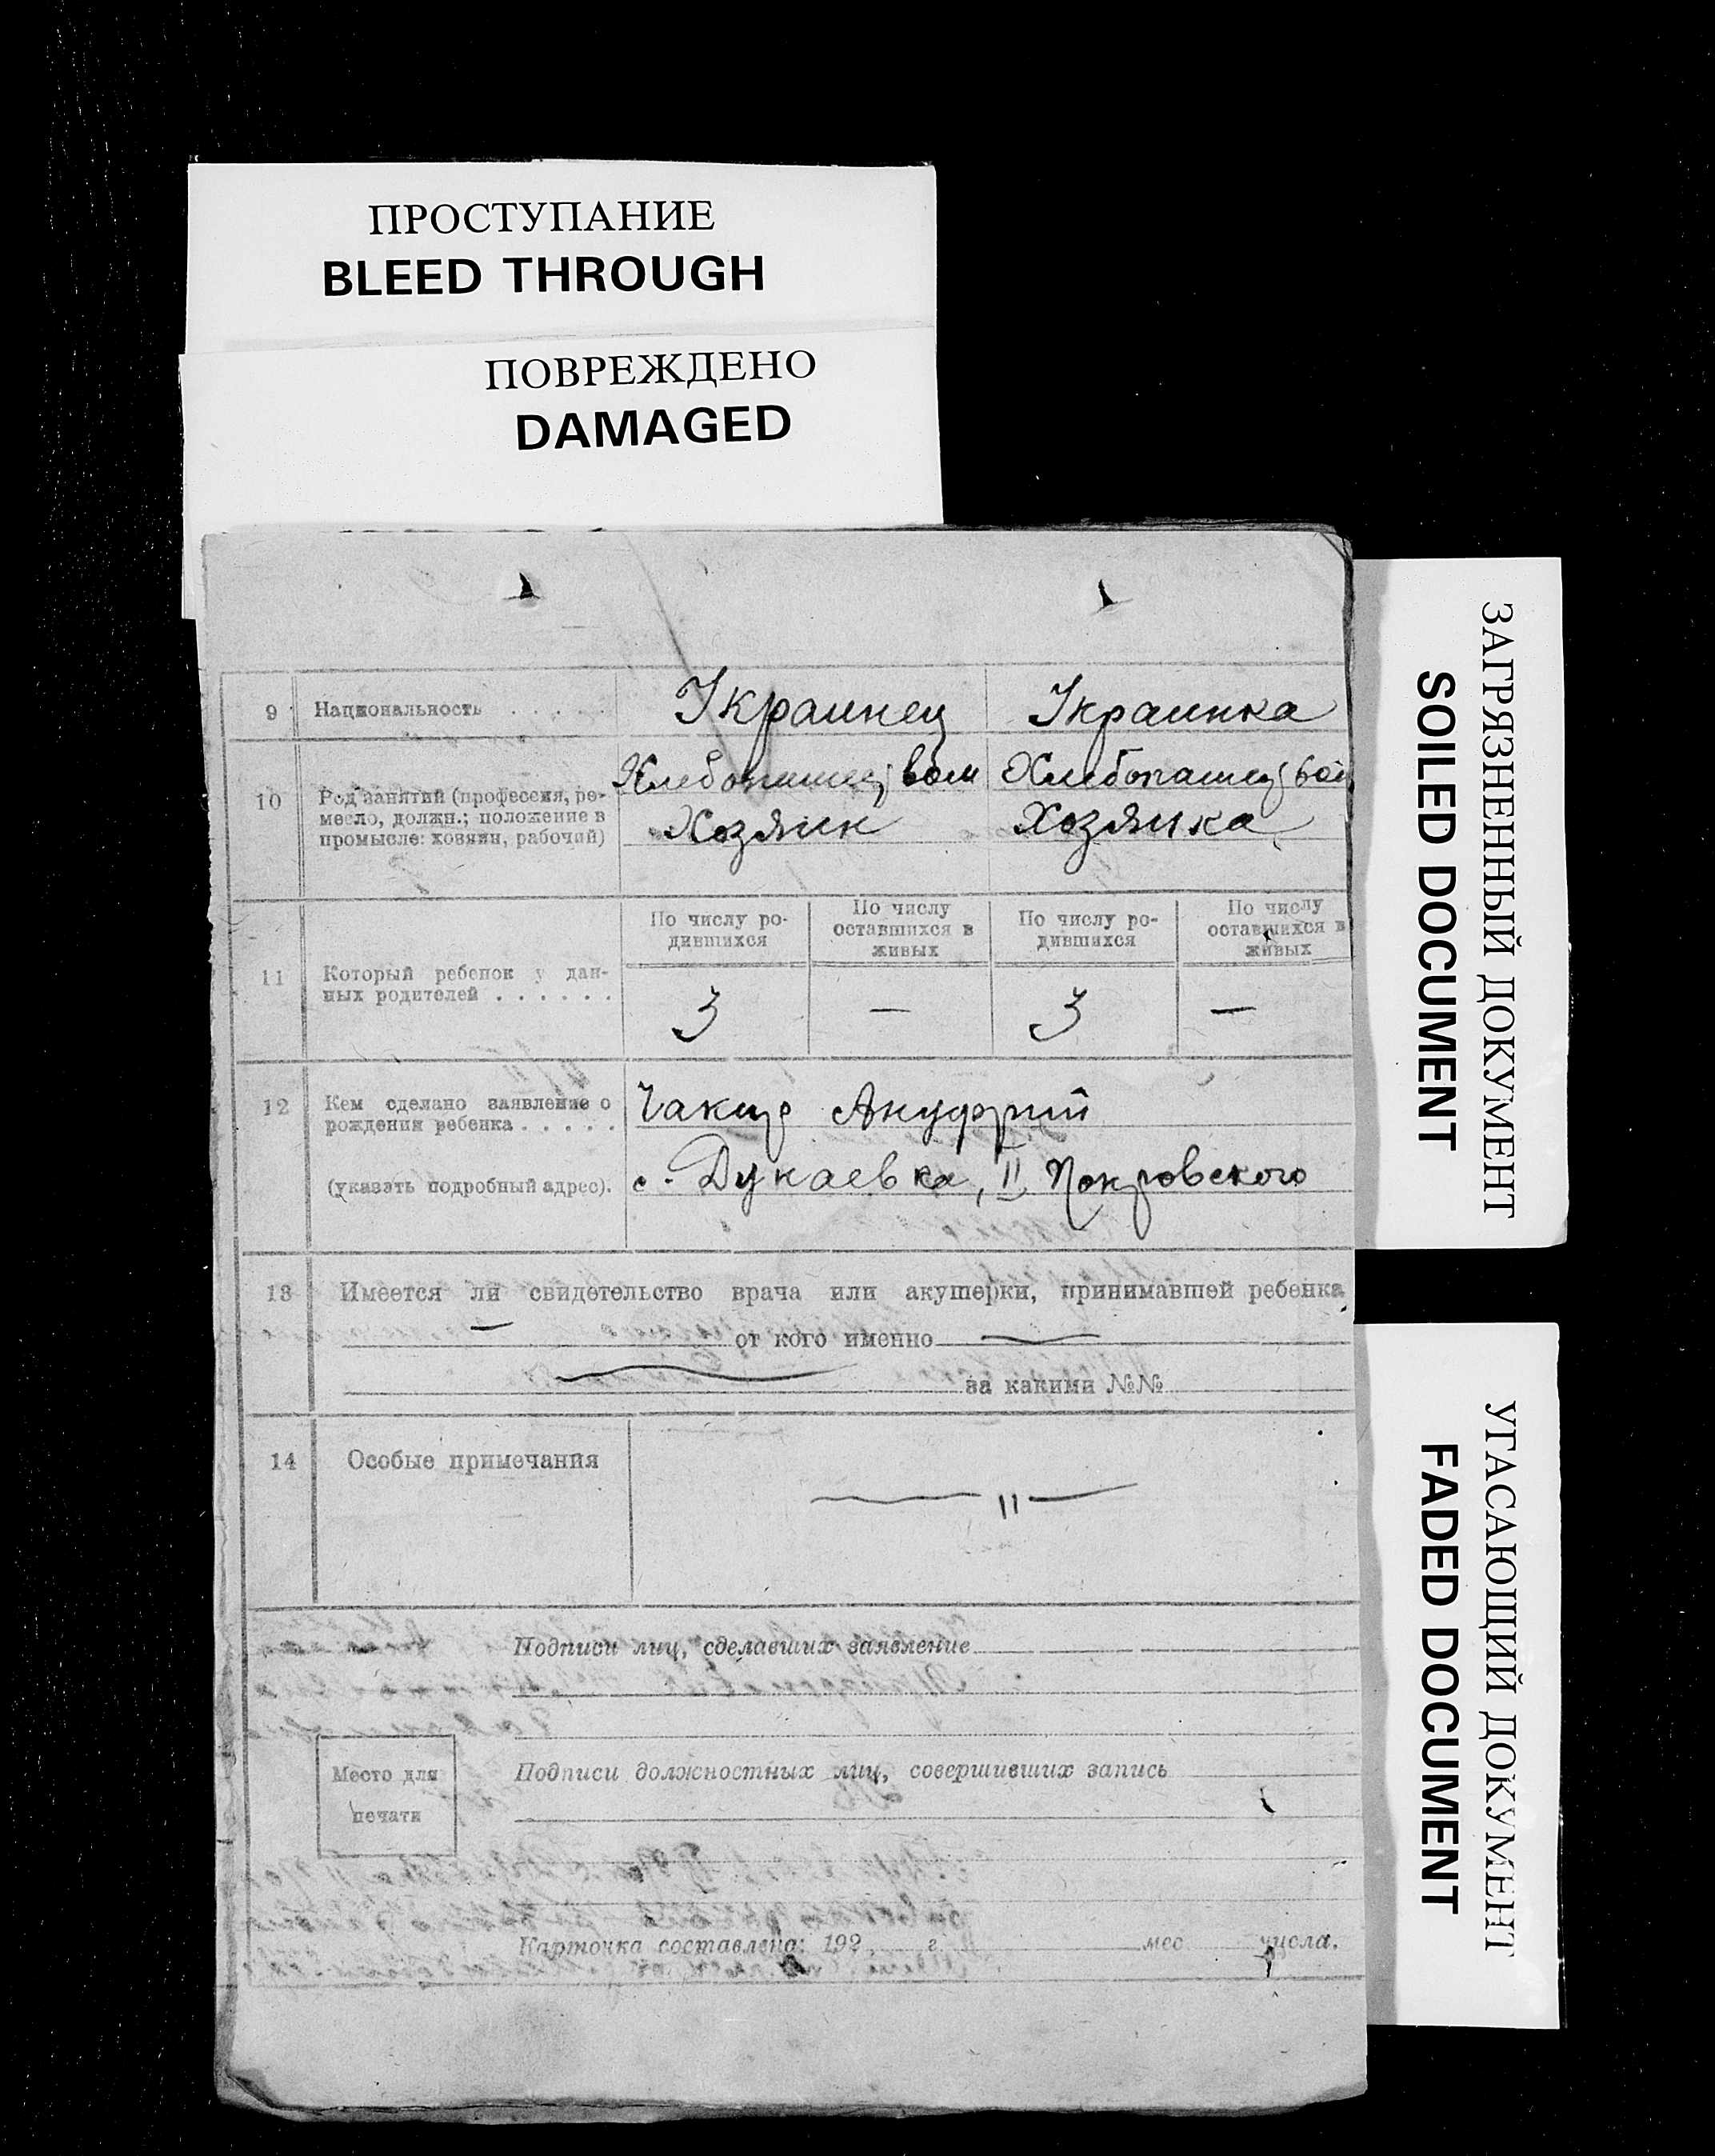 ПРОСТУПАНИЕ
BLEED THROUGH
ПОВРЕЖДЕНО
DAMAGED
ЗАГРЯЗНЕННЫЙ ДОКУМЕНТ
SOILED DOCUMENT
УГАСАЮЩИЙ ДОКУМЕНТ
FADED DOCUMENT
9 Национальность . . . . . Украинец Украинка
10 Род занятий (профессия, ре-
месло, должн.; положение в
промысле: хозяин, рабочий)
Хозяин Хозяика
11 Который ребенок у дан-
ных родителей . . . . . .
По числу ро-
дившихся
По числу
оставшихся в
живых
По числу ро-
дившихся
По числу
оставшихся в
живых
3 — 3 —
12 Кем сделано заявление о
рождении ребенка . . . . .
(указать подробный адрес).
Чакир Ануфрий
с. Дукаевка, II Покровского
13 Имеется ли свидетельство врача или акушерки, принимавшей ребенка
— от кого именно —
— за какими №№
14 Особые примечания — " —
Подписи лиц, сделавших заявление
Место для
печати
Подписи должностных лиц, совершивших запись
Карточка составлена: 192 г. мес числа.